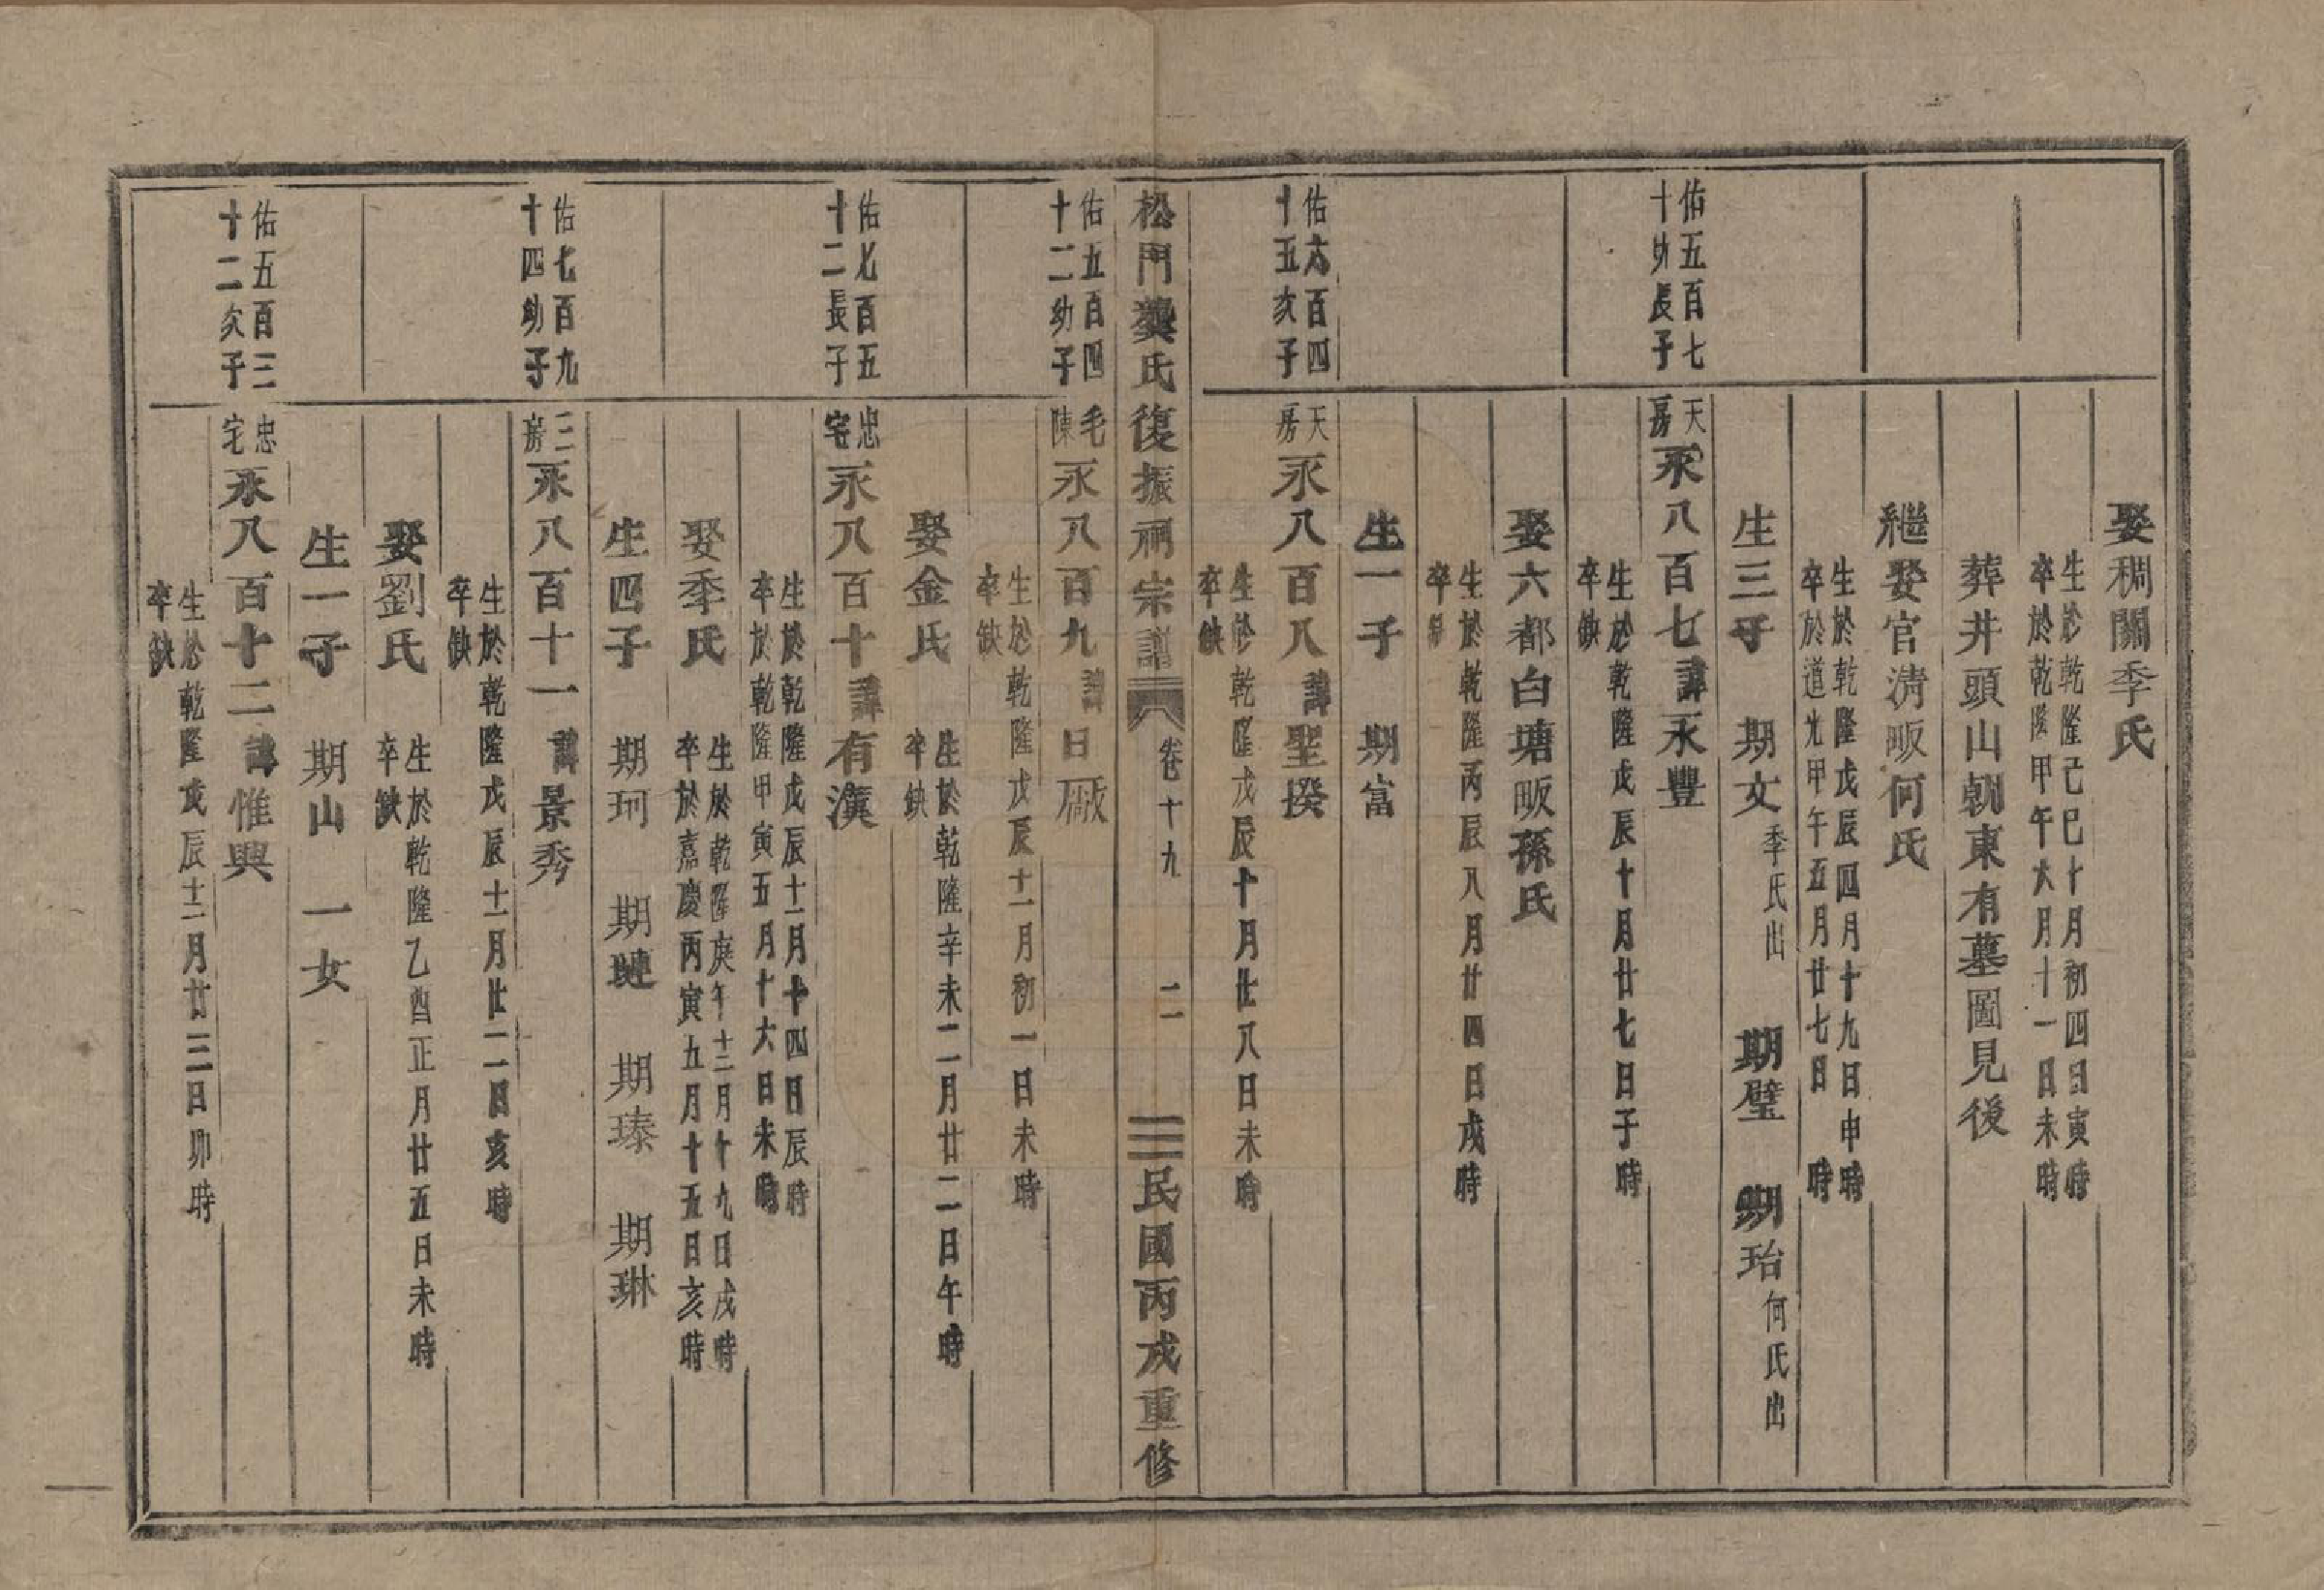 娶稠關季氏
生於乾隆己巳十月初四日寅時
卒於乾隆甲午六月十一日未時
葬井頭山朝東有墓圖見後
繼娶官清畈何氏
生於乾隆戊辰四月十九日申時
卒於道光甲午五月廿七日　時
生三子　期文季氏出　期璧　期珆何氏出
佑五百七
十幼長子
天房永八百七諱永豐
生於乾隆戊辰十月廿七日子時
卒缺
娶六都白塘畈孫氏
生於乾隆丙辰八月廿四日戌時
卒缺
生一子　期富
佑六百四
十五次子
天房永八百八諱聖揆
生於乾隆戊辰十月廿八日未時
卒缺
松門龔氏復振祠宗譜　卷十九　二　民國丙戌重修
佑五百四
十二幼子
毛陳永八百九諱日廠
生於乾隆戊辰十一月初一日未時
卒缺
娶金氏
生於乾隆辛未二月廿二日午時
卒缺
佑七百五
十二長子
忠宅永八百十諱有漢
生於乾隆戊辰十一月十四日辰時
卒於乾隆甲寅五月十六日未時
娶季氏
生於乾隆庚午十二月十九日戌時
卒於嘉慶丙寅五月十五日亥時
生四子　期珂　期璉　期瑧　期琳
佑七百九
十四幼子
三房永八百十一諱景秀
生於乾隆戊辰十一月廿二日亥時
卒缺
娶劉氏
生於乾隆乙酉正月廿五日未時
卒缺
生一子　期山　一女
佑五百三
十二次子
忠宅永八百十二諱惟興
生於乾隆戊辰十二月廿三日卯時
卒缺